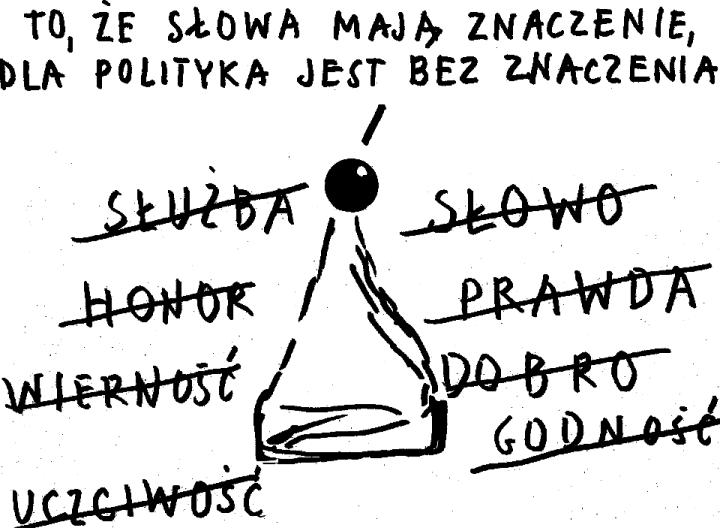 TO, ŻE SŁOWA MAJĄ ZNACZENIE,
DLA POLITYKA JEST BEZ ZNACZENIA
SŁUŻBA
HONOR
WIERNOŚĆ
UCZCIWOŚĆ
SŁOWO
PRAWDA
DOBRO
GODNOŚĆ